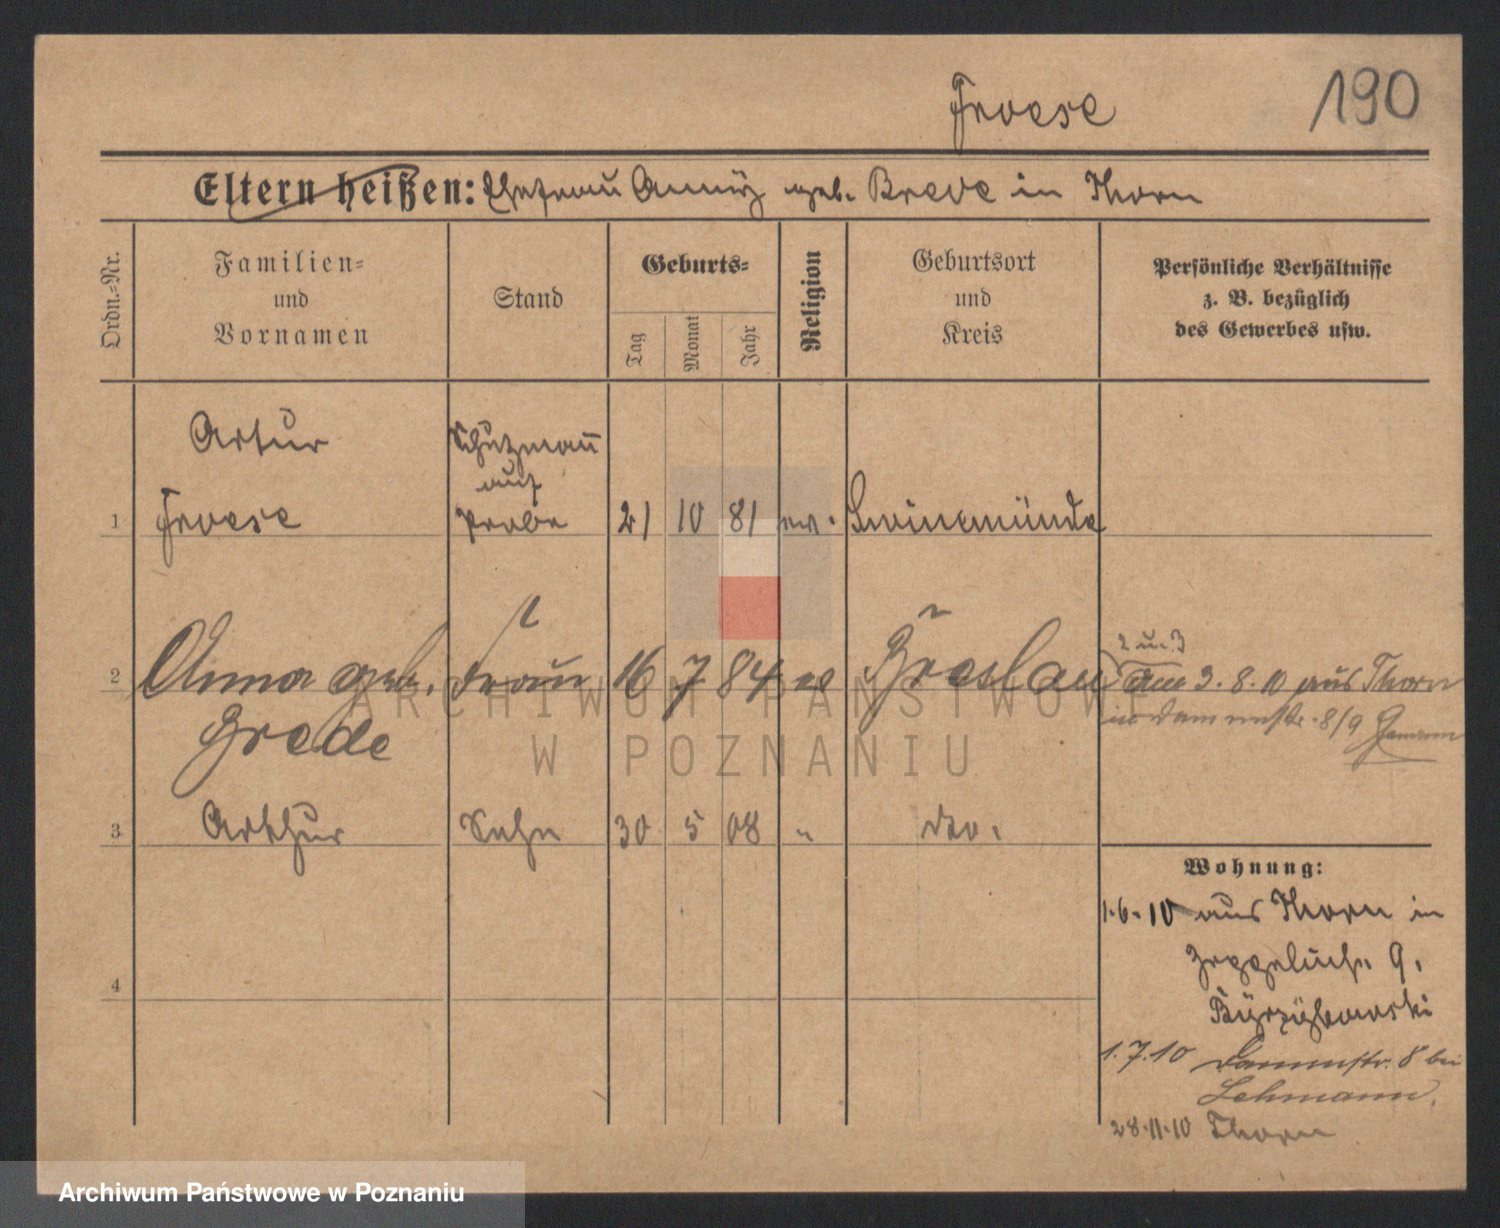 Froese
190
Eltern heißen: Ehefrau Anny geb. Brede in Thorn
Ordn.-Nr.
Familien-
und
Vornamen
Stand
Geburts-
Tag
Monat
Jahr
Religion
Geburtsort
und
Kreis
Persönliche Verhältnisse
z. B. bezüglich
des Gewerbes usw.
1
Artur
Froese
Schutzmann
auf
Probe
21 10 81 ev. Swinemünde
2
Anna geb.
Brede
Frau
16 7 84 ev Breslau
2 u. 3
am 3. 8. 10 aus Thorn
in Dammstr. 8/9
3
Arthur
Sohn
30 5 08 " dto.
4
Wohnung:
1.6.10 aus Thorn in
9.
1.7.10 Dammstr. 8 bei
Lehmann.
28.11.10 Thorn
ARCHIWUM PAŃSTWOWE
W POZNANIU
Archiwum Państwowe w Poznaniu